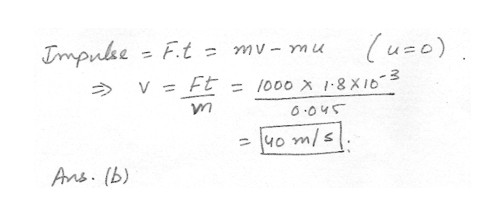 Impulse = F.t = mv - mu (u=0).
⇒ v = Ft/m = 1000 × 1.8×10⁻³/0.045
= 40 m/s.
Ans. (b)